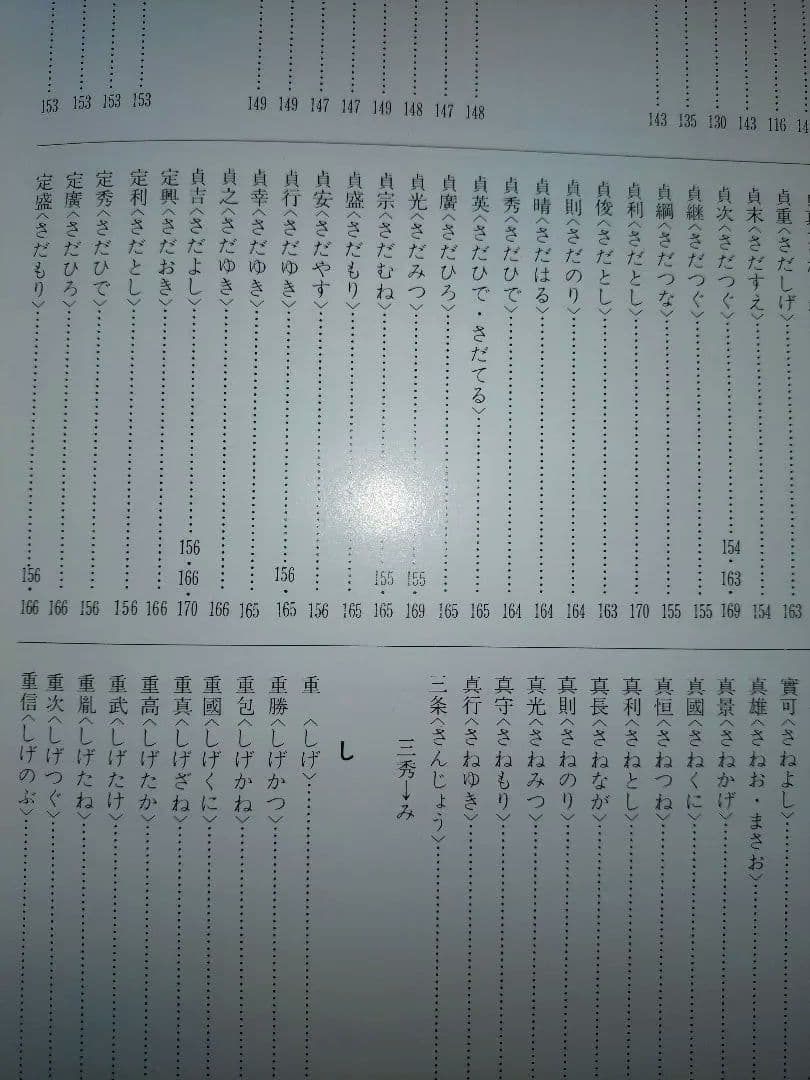 148
147
148
149
147
147
149
149
153
153
153
153
116
143
130
135
143
貞重〈さだしげ〉 163
貞末〈さだすえ〉 154
貞次〈さだつぐ〉 154・163・169
貞継〈さだつぐ〉 155
貞綱〈さだつな〉 155
貞利〈さだとし〉 170
貞俊〈さだとし〉 163
貞則〈さだのり〉 164
貞晴〈さだはる〉 164
貞秀〈さだひで〉 164
貞英〈さだひで・さだてる〉 165
貞廣〈さだひろ〉 165
貞光〈さだみつ〉 155・169
貞宗〈さだむね〉 155・165
貞盛〈さだもり〉 165
貞安〈さだやす〉 156
貞行〈さだゆき〉 156・165
貞幸〈さだゆき〉 165
貞之〈さだゆき〉 166
貞吉〈さだよし〉 156・166・170
定興〈さだおき〉 166
定利〈さだとし〉 156
定秀〈さだひで〉 156
定廣〈さだひろ〉 166
定盛〈さだもり〉 156・166
實可〈さねよし〉
真雄〈さねお・まさお〉
真景〈さねかげ〉
真國〈さねくに〉
真恒〈さねつね〉
真利〈さねとし〉
真長〈さねなが〉
真則〈さねのり〉
真光〈さねみつ〉
真守〈さねもり〉
真行〈さねゆき〉
三条〈さんじょう〉
三秀→み
し
重〈しげ〉
重勝〈しげかつ〉
重包〈しげかね〉
重國〈しげくに〉
重真〈しげざね〉
重高〈しげたか〉
重武〈しげたけ〉
重胤〈しげたね〉
重次〈しげつぐ〉
重信〈しげのぶ〉